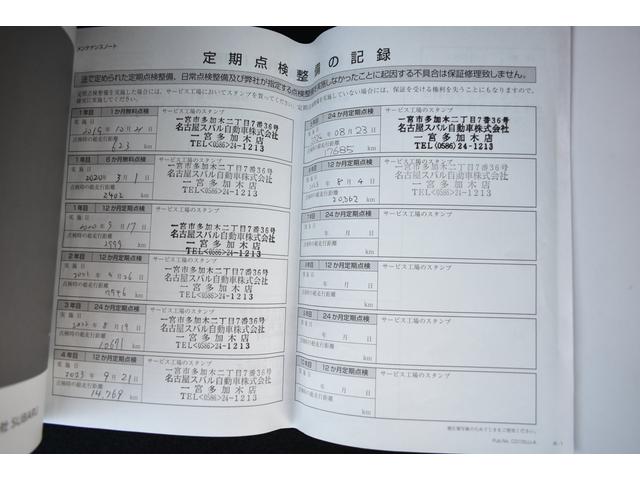 メンテナンスノート
定期点検整備の記録
法で定められた定期点検整備、日常点検整備及び弊社が指定する点検整備を実施しなかったことに起因する不具合は保証修理致しません。
定期点検整備を実施した場合には、サービス工場においてスタンプを貰ってください。
1年目 1か月無料点検
サービス工場のスタンプ
実施日
2019年12月21日
点検時の総走行距離
623 km
一宮市多加木二丁目7番36号
名古屋スバル自動車株式会社
一宮多加木店
TEL<0586>24-1213
1年目 6か月無料点検
サービス工場のスタンプ
実施日
2020年3月1日
点検時の総走行距離
2402 km
一宮市多加木二丁目7番36号
名古屋スバル自動車株式会社
一宮多加木店
TEL<0586>24-1213
1年目 12か月定期点検
サービス工場のスタンプ
実施日
2020年9月17日
点検時の総走行距離
km
一宮市多加木二丁目7番36号
名古屋スバル自動車株式会社
一宮多加木店
TEL<0586>24-1213
2年目 12か月定期点検
サービス工場のスタンプ
実施日
点検時の総走行距離
km
一宮市多加木二丁目7番36号
名古屋スバル自動車株式会社
一宮多加木店
TEL<0586>24-1213
3年目 24か月定期点検
サービス工場のスタンプ
実施日
2022年8月19日
点検時の総走行距離
10691 km
一宮市多加木二丁目7番36号
名古屋スバル自動車株式会社
一宮多加木店
TEL<0586>24-1213
4年目 12か月定期点検
サービス工場のスタンプ
実施日
2023年9月21日
点検時の総走行距離
14,769 km
一宮市多加木二丁目7番36号
名古屋スバル自動車株式会社
一宮多加木店
TEL<0586>24-1213
24か月定期点検
サービス工場のスタンプ
08月23日
点検時の総走行距離
17685 km
一宮市多加木二丁目7番36号
名古屋スバル自動車株式会社
一宮多加木店
TEL(0586)24-1213
12か月定期点検
サービス工場のスタンプ
8月4日
点検時の総走行距離
20,362 km
一宮市多加木二丁目7番36号
名古屋スバル自動車株式会社
一宮多加木店
TEL<0586>24-1213
24か月定期点検
サービス工場のスタンプ
年 月 日
km
12か月定期点検
サービス工場のスタンプ
年 月 日
km
24か月定期点検
サービス工場のスタンプ
年 月 日
km
12か月定期点検
サービス工場のスタンプ
年 月 日
km
社 SUBARU